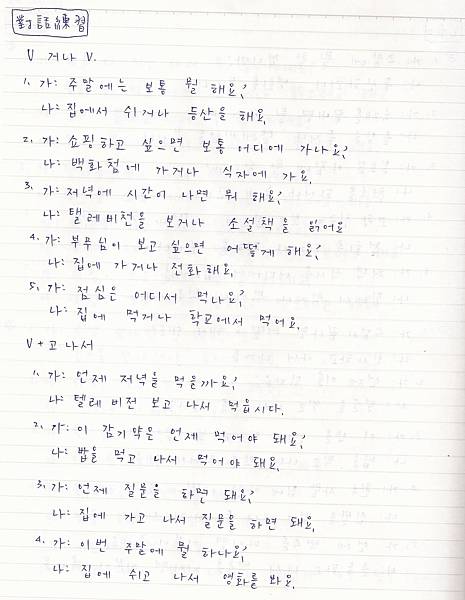 對話練習
V 거나 V.
1. 가: 주말에는 보통 뭘 해요?
나: 집에서 쉬거나 등산을 해요.
2. 가: 쇼핑하고 싶으면 보통 어디에 가나요?
나: 백화점에 가거나 식자에 가요.
3. 가: 저녁에 시간이 나면 뭐 해요?
나: 탤레비전을 보거나 소설책을 읽어요
4. 가: 부푸님이 보고 싶으면 어떻게 해요?
나: 집에 가거나 전화해요.
5. 가: 점심은 어디서 먹나요?
나: 집에 먹거나 학교에서 먹어요.
V + 고 나서
1. 가: 언제 저녁을 먹을까요?
나: 텔레비전 보고 나서 먹읍시다.
2. 가: 이 감기약은 언제 먹어야 돼요?
나: 밥을 먹고 나서 먹어야 돼요.
3. 가: 언제 질문을 하면 돼요?
나: 집에 가고 나서 질문을 하면 돼요.
4. 가: 이번 주말에 뭘 하나요?
나: 집에 쉬고 나서 영화를 봐요.